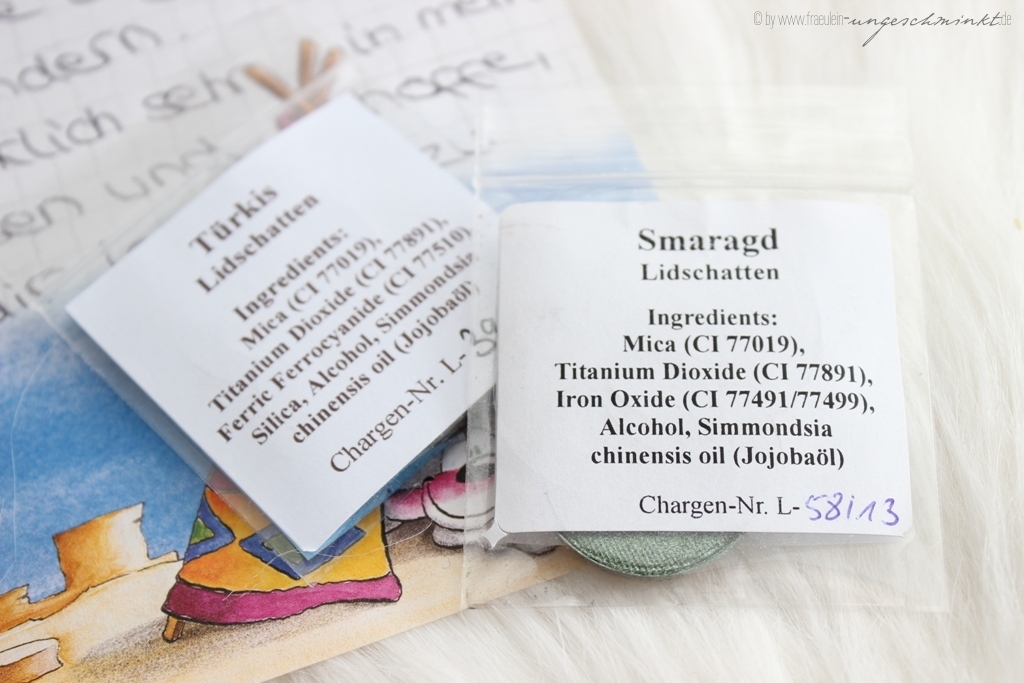 © by www.fraeulein-ungeschminkt.de
ndern
in mein
klich sehr
hoffe,
und
zu.
Türkis
Lidschatten
Ingredients:
Mica (CI 77019),
Titanium Dioxide (CI 77891),
Ferric Ferrocyanide (CI 77510),
Silica, Alcohol, Simmondsia
chinensis oil (Jojobaöl)
Chargen-Nr. L-39
Smaragd
Lidschatten
Ingredients:
Mica (CI 77019),
Titanium Dioxide (CI 77891),
Iron Oxide (CI 77491/77499),
Alcohol, Simmondsia
chinensis oil (Jojobaöl)
Chargen-Nr. L-58i13